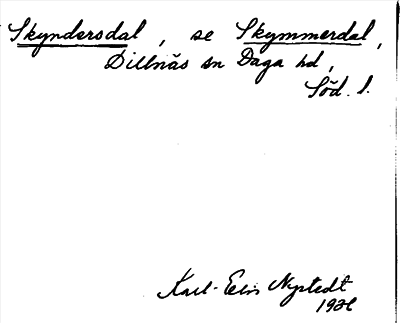 Skyndersdal, se Skymmerdal,
Dillnäs sn Daga hd,
Söd. l.
Karl-Elis Nystedt